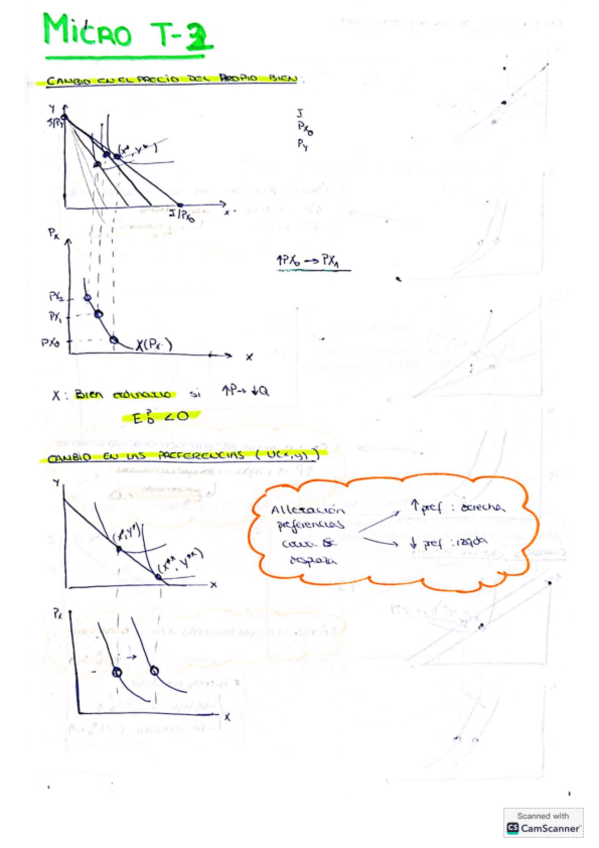 MICRO T-2
CAMBIO EN EL PRECIO DEL PROPIO BIEN:
Y
I/PY
(X*, Y*)
I/PX0
X
I
PX0
PY
PX
PX2
PX1
PX0
X(PX)
X
↑PX0 → PX1
X: Bien ordinario si ↑P → ↓Q
E P D < 0
CAMBIO EN LAS PREFERENCIAS (U(x,y))
Y
(X*, Y*)
(X**, Y**)
X
Alteración
preferencias
curva se
desplaza
↑ pref: derecha
↓ pref: izqda
PX
→
X
Scanned with
CS CamScanner